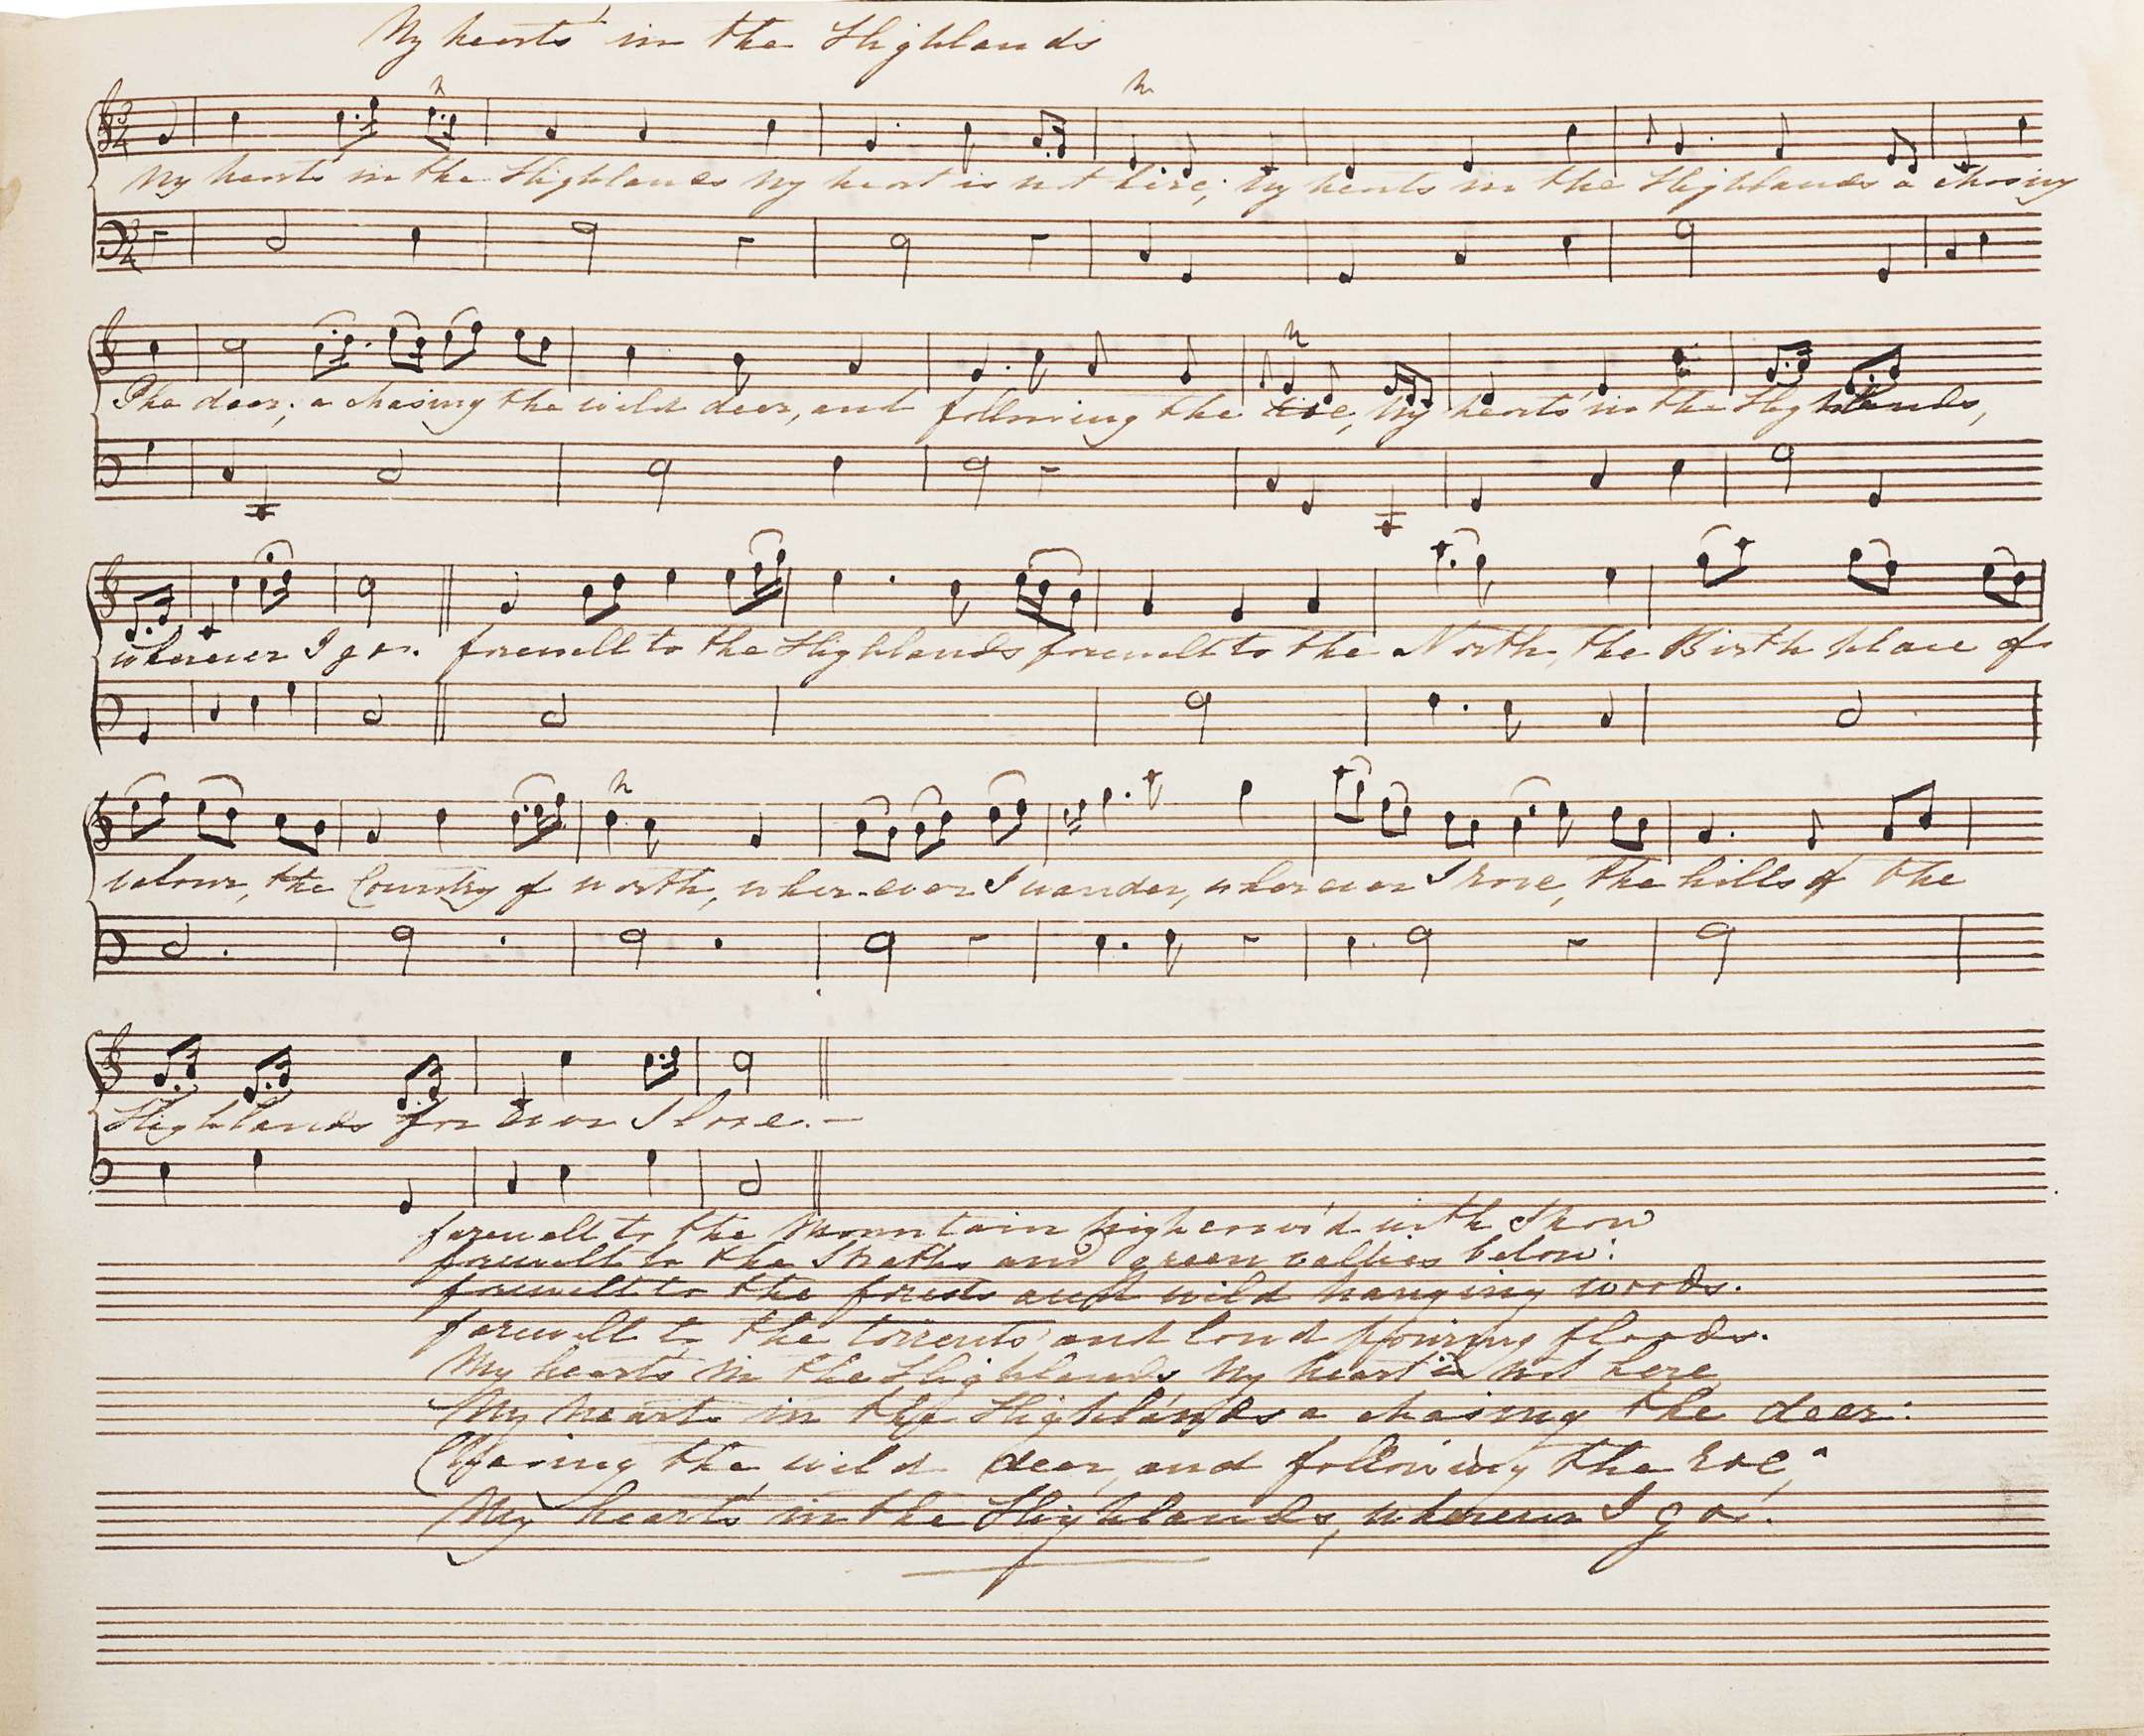 My hearts' in the Highlands
3 4
My hearts in the Highlands my heart is not here; my hearts in the Highlands a chasing
3 4
The deer; a chasing the wild deer, and following the roe, My hearts' in the Highlands,
wherever I go. farewell to the Highlands farewell to the North, the Birth place of
valour, the Country of worth, wher-ever I wander, wherever I rove, the hills of the
Highlands for ever I love.—
farewell to the Mountain high cov'd with Snow
farewell to the Straths and green vallies below:
farewell to the forests and wild hanging woods.
farewell to the torrents and loud pouring floods.
My heart's in the Highlands My heart is not here
My hearts in the Highlands a chasing the deer:
Chasing the wild deer, and following the roe,
My heart's in the Highlands, wherever I go.